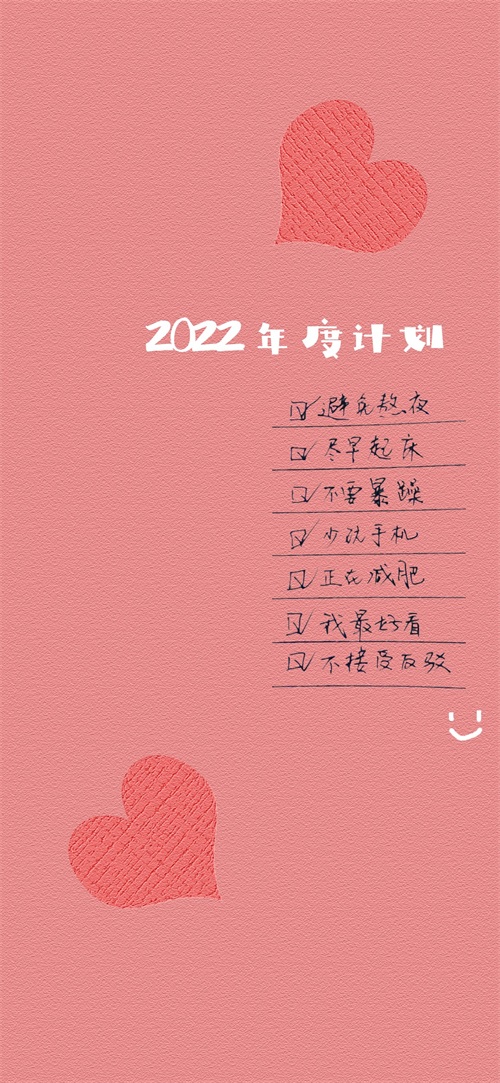 2022年度计划
避免熬夜
尽早起床
不要暴躁
少玩手机
正在减肥
我最好看
不接受反驳